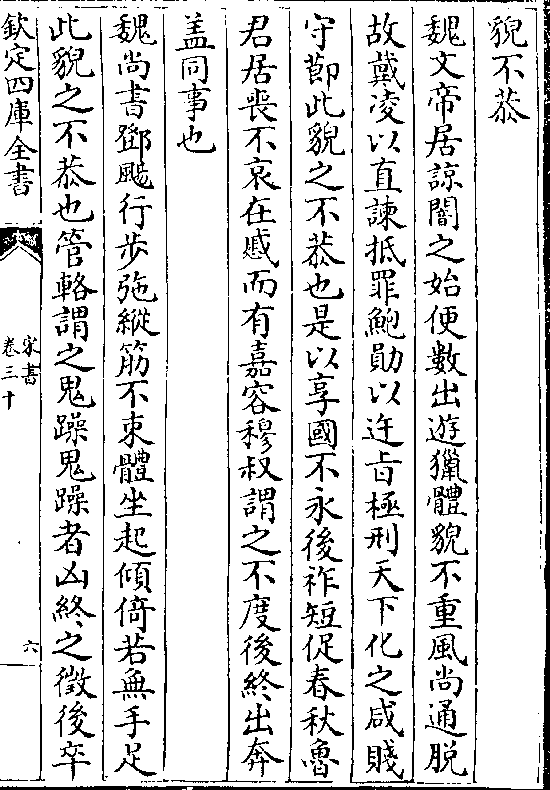 貌不恭
魏文帝居諒闇之始便數出遊獵體貌不重風尚通脫
故戴凌以直諫抵罪鮑勛以迕旨極刑天下化之咸賤
守節此貌之不恭也是以享國不永後祚短促春秋魯
君居喪不哀在慼而有嘉容穆叔謂之不度後終出奔
盖同事也
魏尚書鄧颺行步弛縱筋不束體坐起傾倚若無手足
此貌之不恭也管輅謂之鬼躁鬼躁者凶終之徵後卒
欽定四庫全書
宋書
卷三十
六